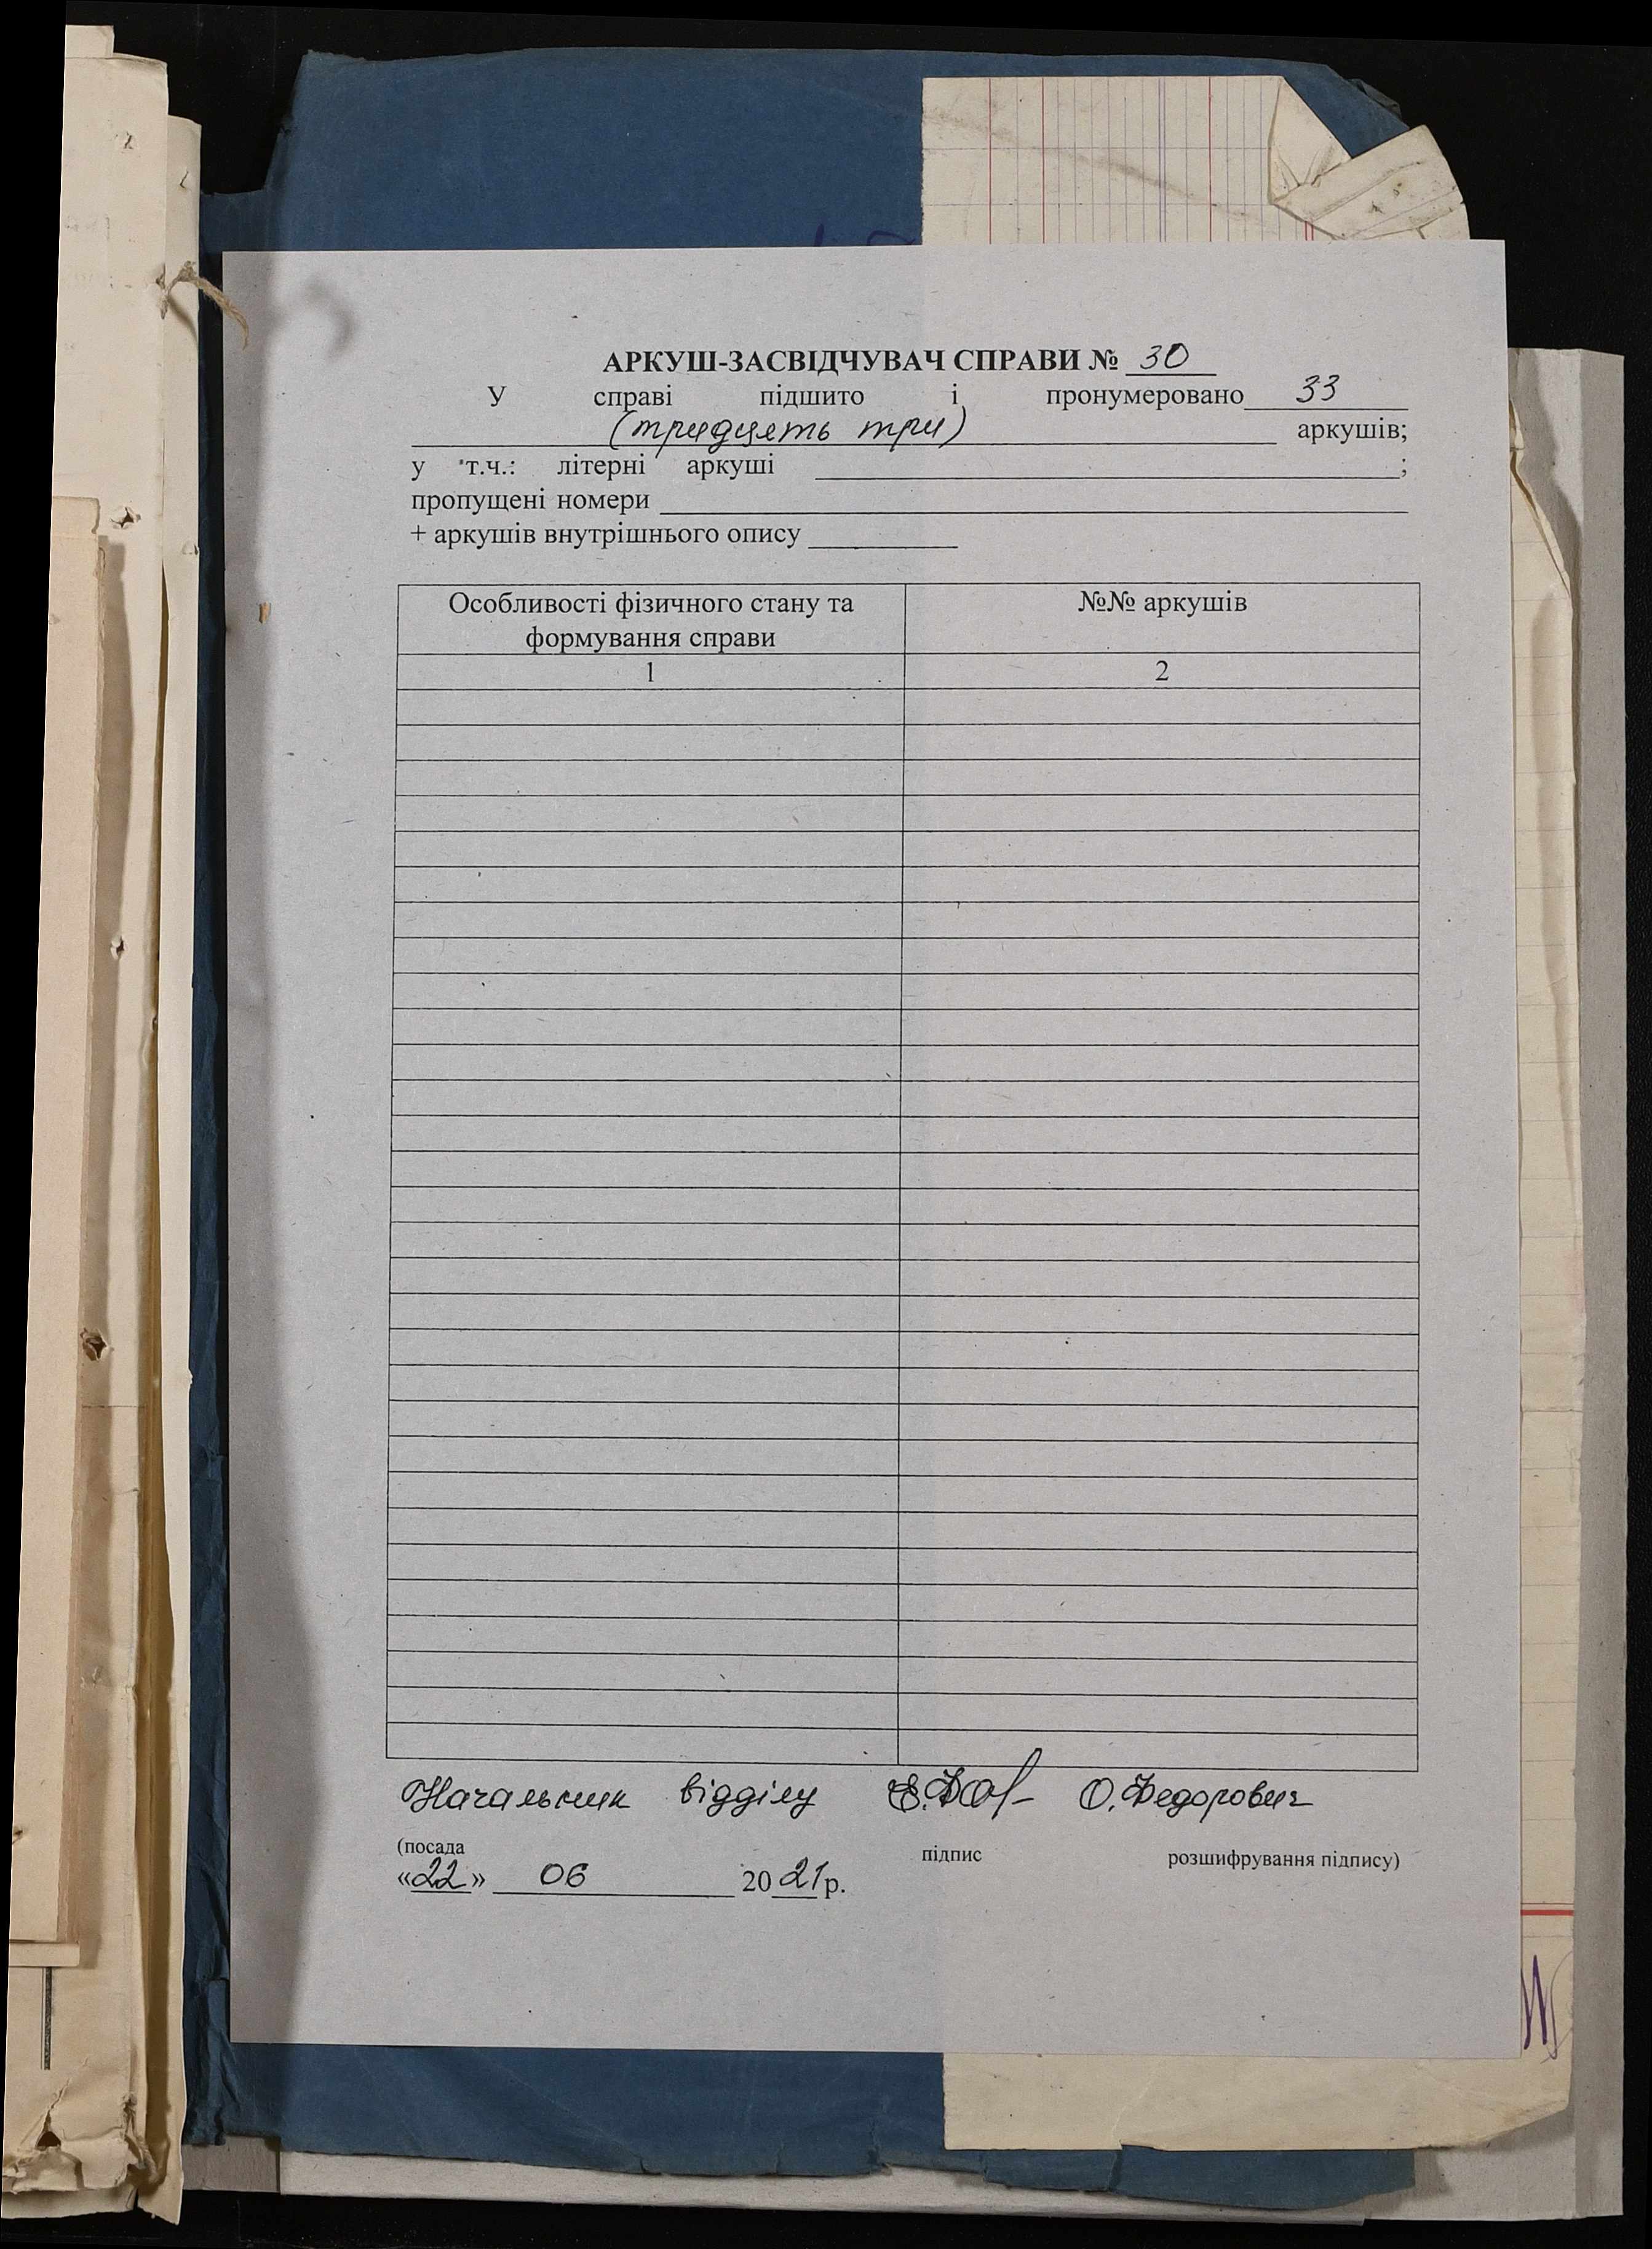 АРКУШ-ЗАСВІДЧУВАЧ СПРАВИ № 30
У справі підшито і пронумеровано 33
(тридцять три) аркушів;
у т.ч.: літерні аркуші ;
пропущені номери
+ аркушів внутрішнього опису
Особливості фізичного стану та формування справи №№ аркушів
1 2
Начальник відділу О.Федорович
(посада підпис розшифрування підпису)
«22» 06 2021 р.